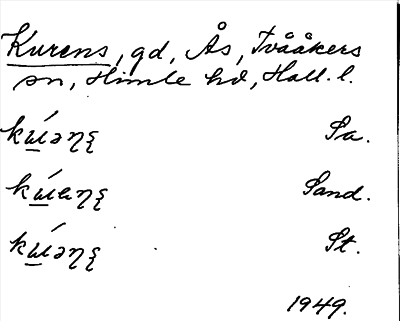 Kurens, gd, Ås, Tvååkers
sn, Himle hd, Hall. l.
kúəηξ Sa.
kúɐηξ Sand.
kúəηξ St.
1949.